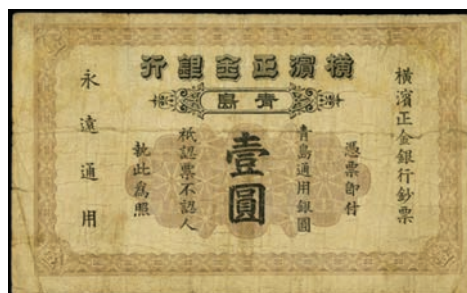 行銀金正濱橫
島青
橫濱正金銀行鈔票
憑票即付
青島通用銀圓
壹圓
祇認票不認人
執此為照
永遠通用